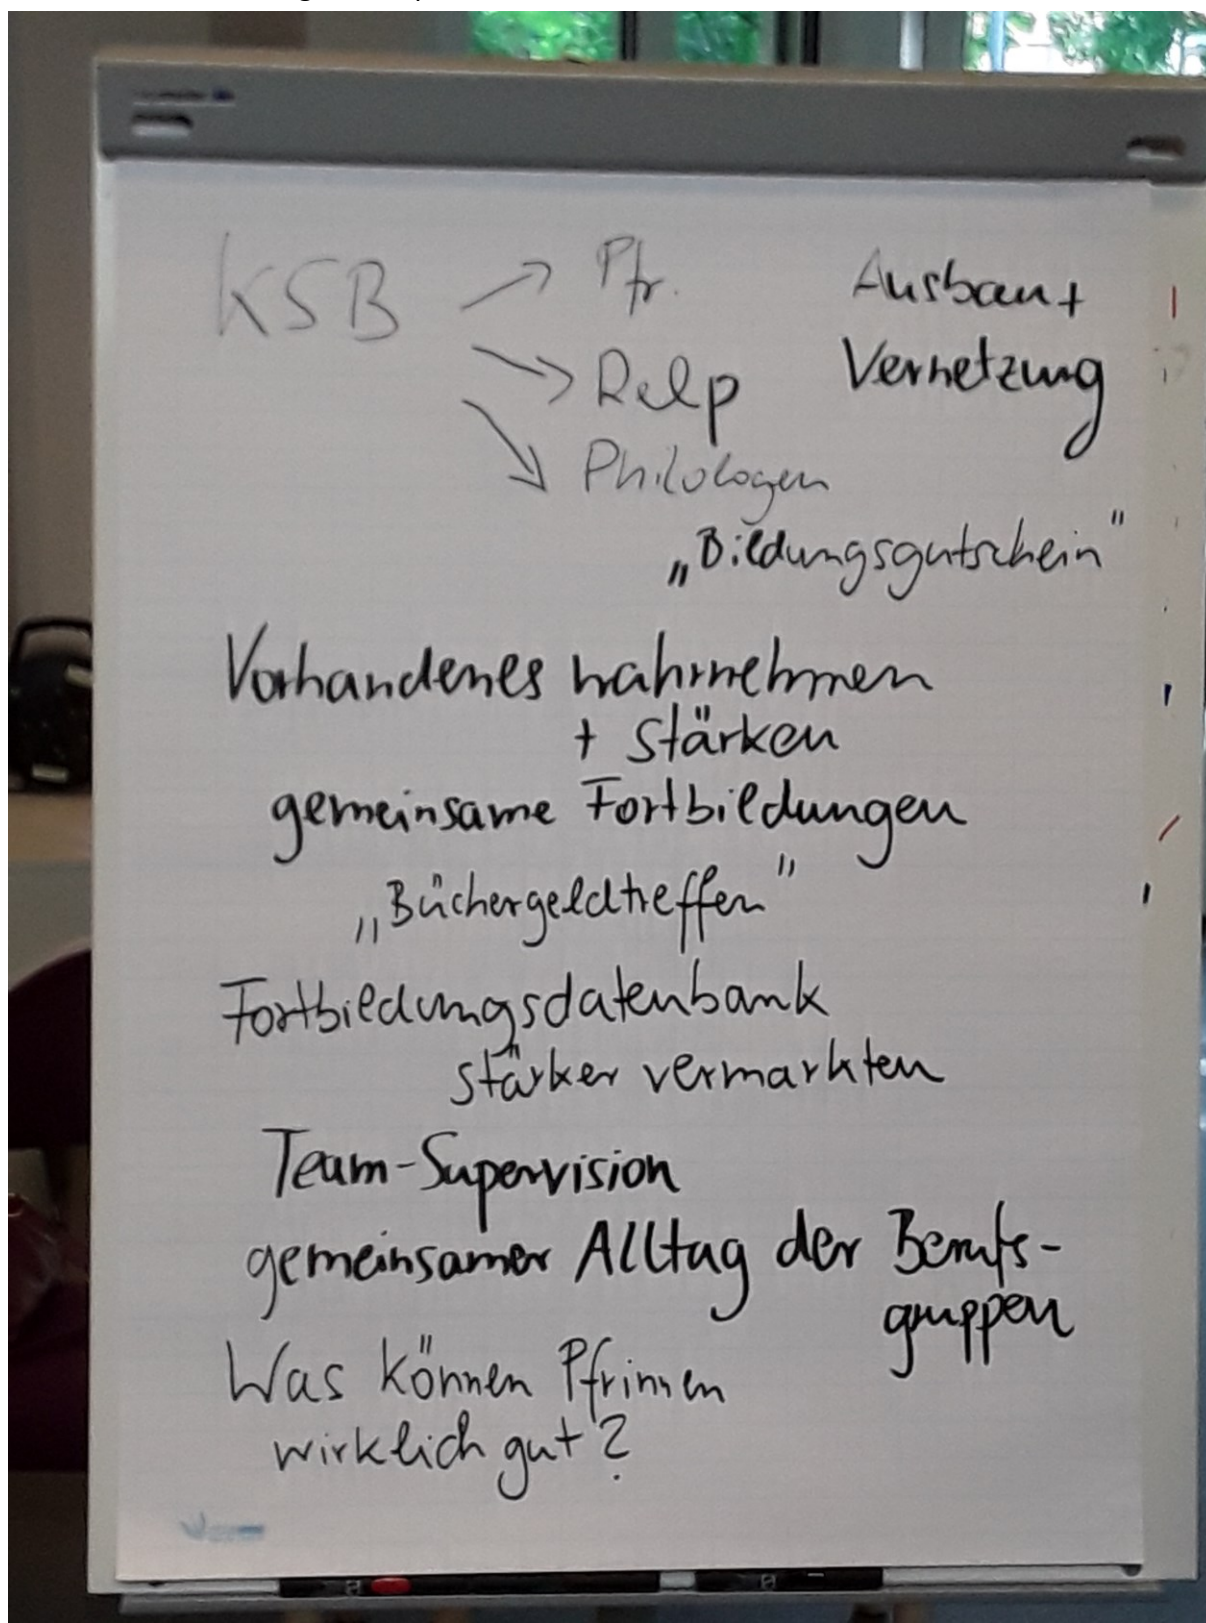 KSB → Pfr.
→ Relp
→ Philologen
Ausbau +
Vernetzung
„Bildungsgutschein"
Vorhandenes wahrnehmen
+ stärken
gemeinsame Fortbildungen
„Büchergeldtreffen"
Fortbildungsdatenbank
stärker vermarkten
Team-Supervision
gemeinsamer Alltag der Berufs-
gruppen
Was können Pfrinnen
wirklich gut?